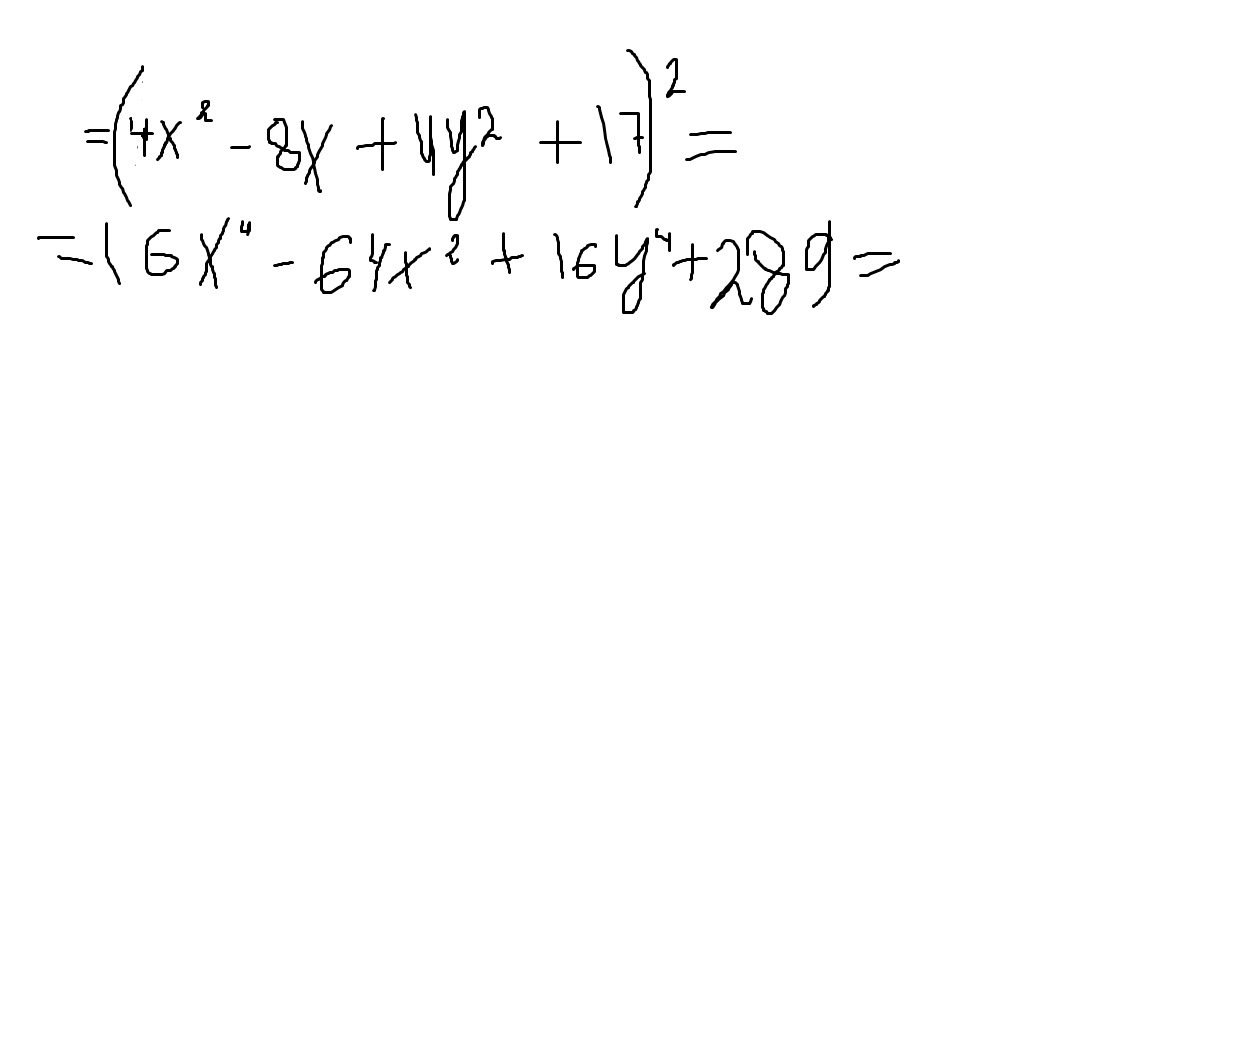 =(4x² - 8x + 4y² + 17)² =
= 16x⁴ - 64x² + 16y⁴ + 289 =